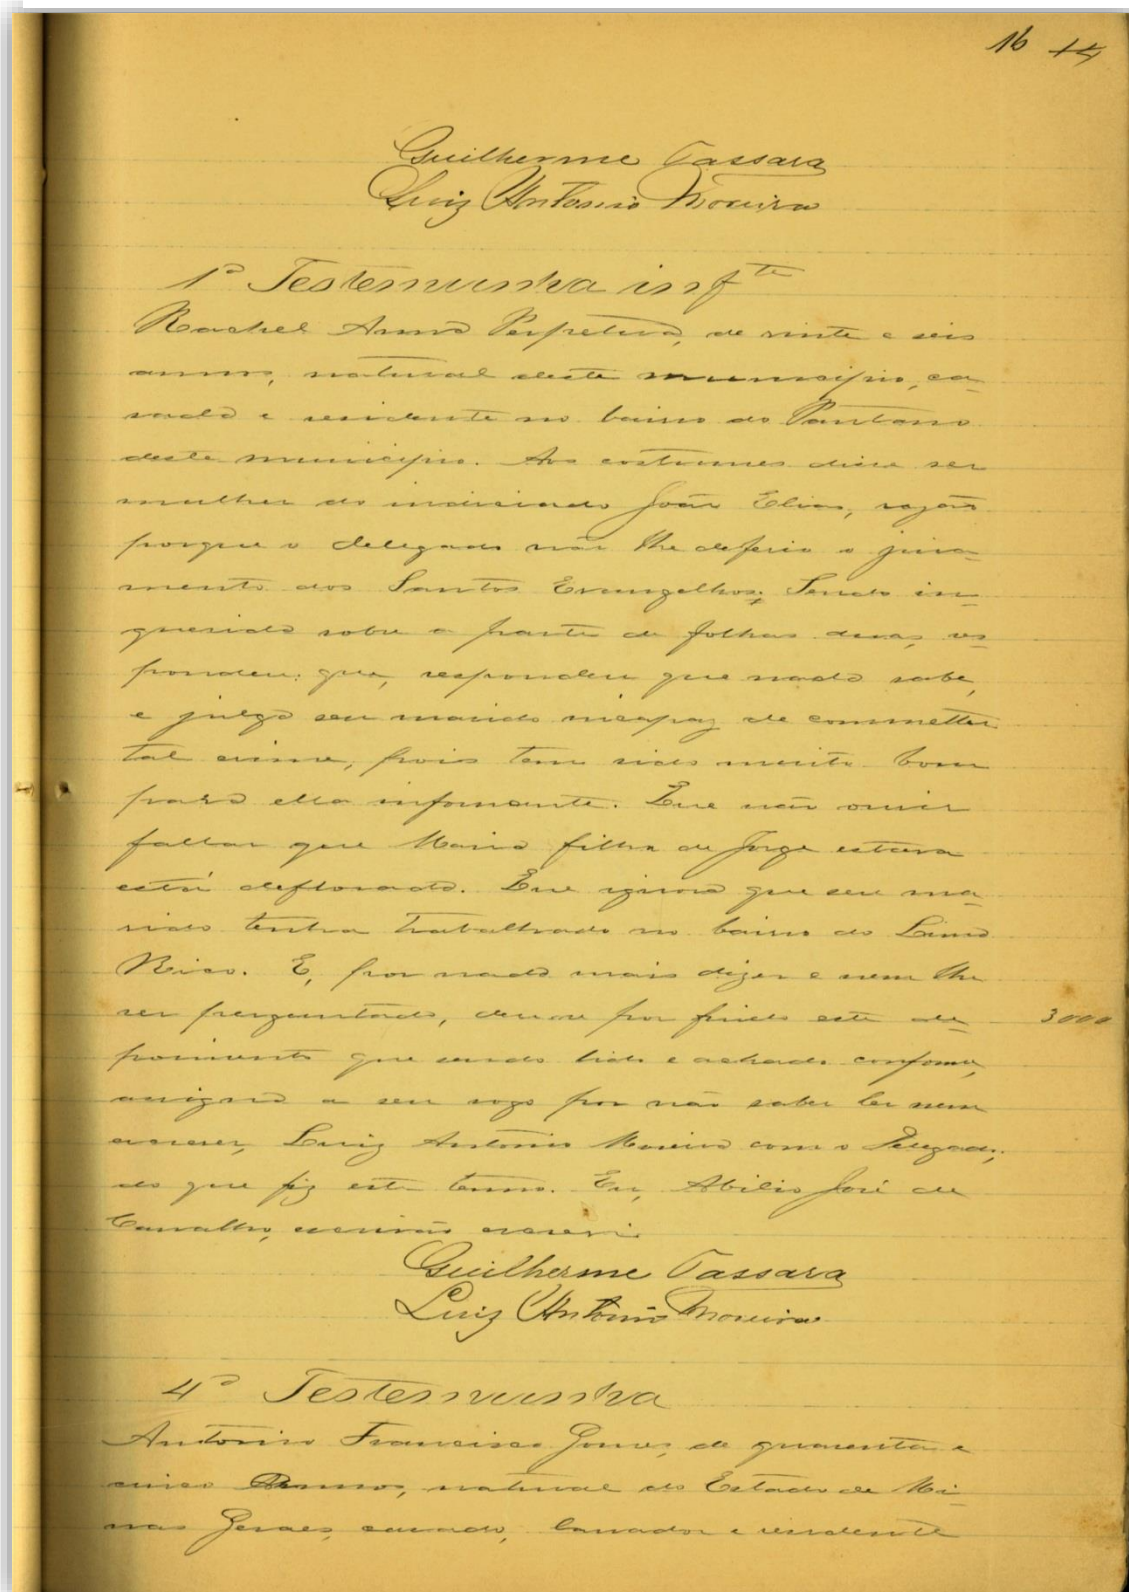 16 14
Guilherme Tassara
Luiz Antonio Moreira
1ª Testemunha infte
Rachel Anna Perpetua, de vinte e seis
annos, natural deste municipio, ca-
sada e residente no bairro do Pantano
deste municipio. Aos costumes disse ser
mulher do indiciado João Elias, razão
porque o delegado não lhe deferio o jura-
mento dos Santos Evangelhos; Sendo in-
querida sobre a parte de folhas duas, res-
pondeu: que, respondeu que nada sabe,
e julga seu marido incapaz de commetter
tal crime, pois tem sido muito bom
para ella informante. Que não ouvir
fallar que Maria filha de Jorge estava
está deflorada. Que ignora que seu ma-
rido tenha trabalhado no bairro do Lima
Rico. E, por nada mais dizer e nem lhe
ser perguntado, deu-se por findo este de-
3000
poimento que sendo lido e achado conforme,
assigna a seu rogo por não saber ler nem
escrever, Luiz Antonio Moreira com o Delegado,
do que fiz este termo. Eu, Abilio José de
Carvalho, escrivão escrevi
Guilherme Tassara
Luiz Antonio Moreira
4ª Testemunha
Antonio Francisco Gomes, de quarenta e
cinco annos, natural do Estado de Mi-
nas Geraes, casado, lavrador e residente